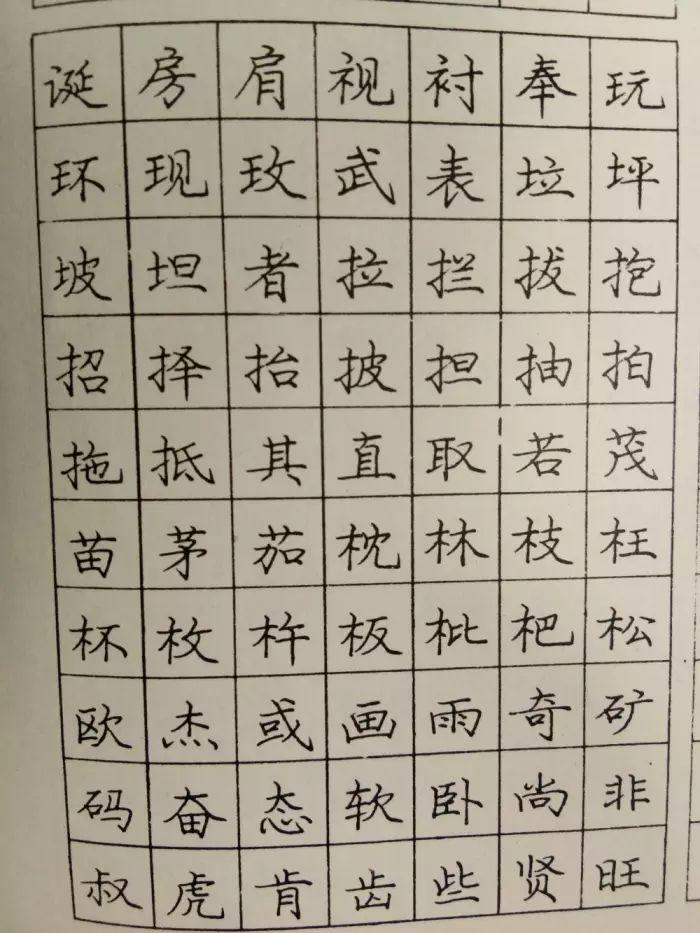 诞房肩视衬奉玩
环现玫武表垃坪
坡坦者拉拦拔抱
招择抬披担抽拍
拖抵其直取若茂
苗茅茄枕林枝枉
杯枚杵板枇杷松
欧杰或画雨奇矿
码奋态软卧尚非
叔虎肯齿些贤旺